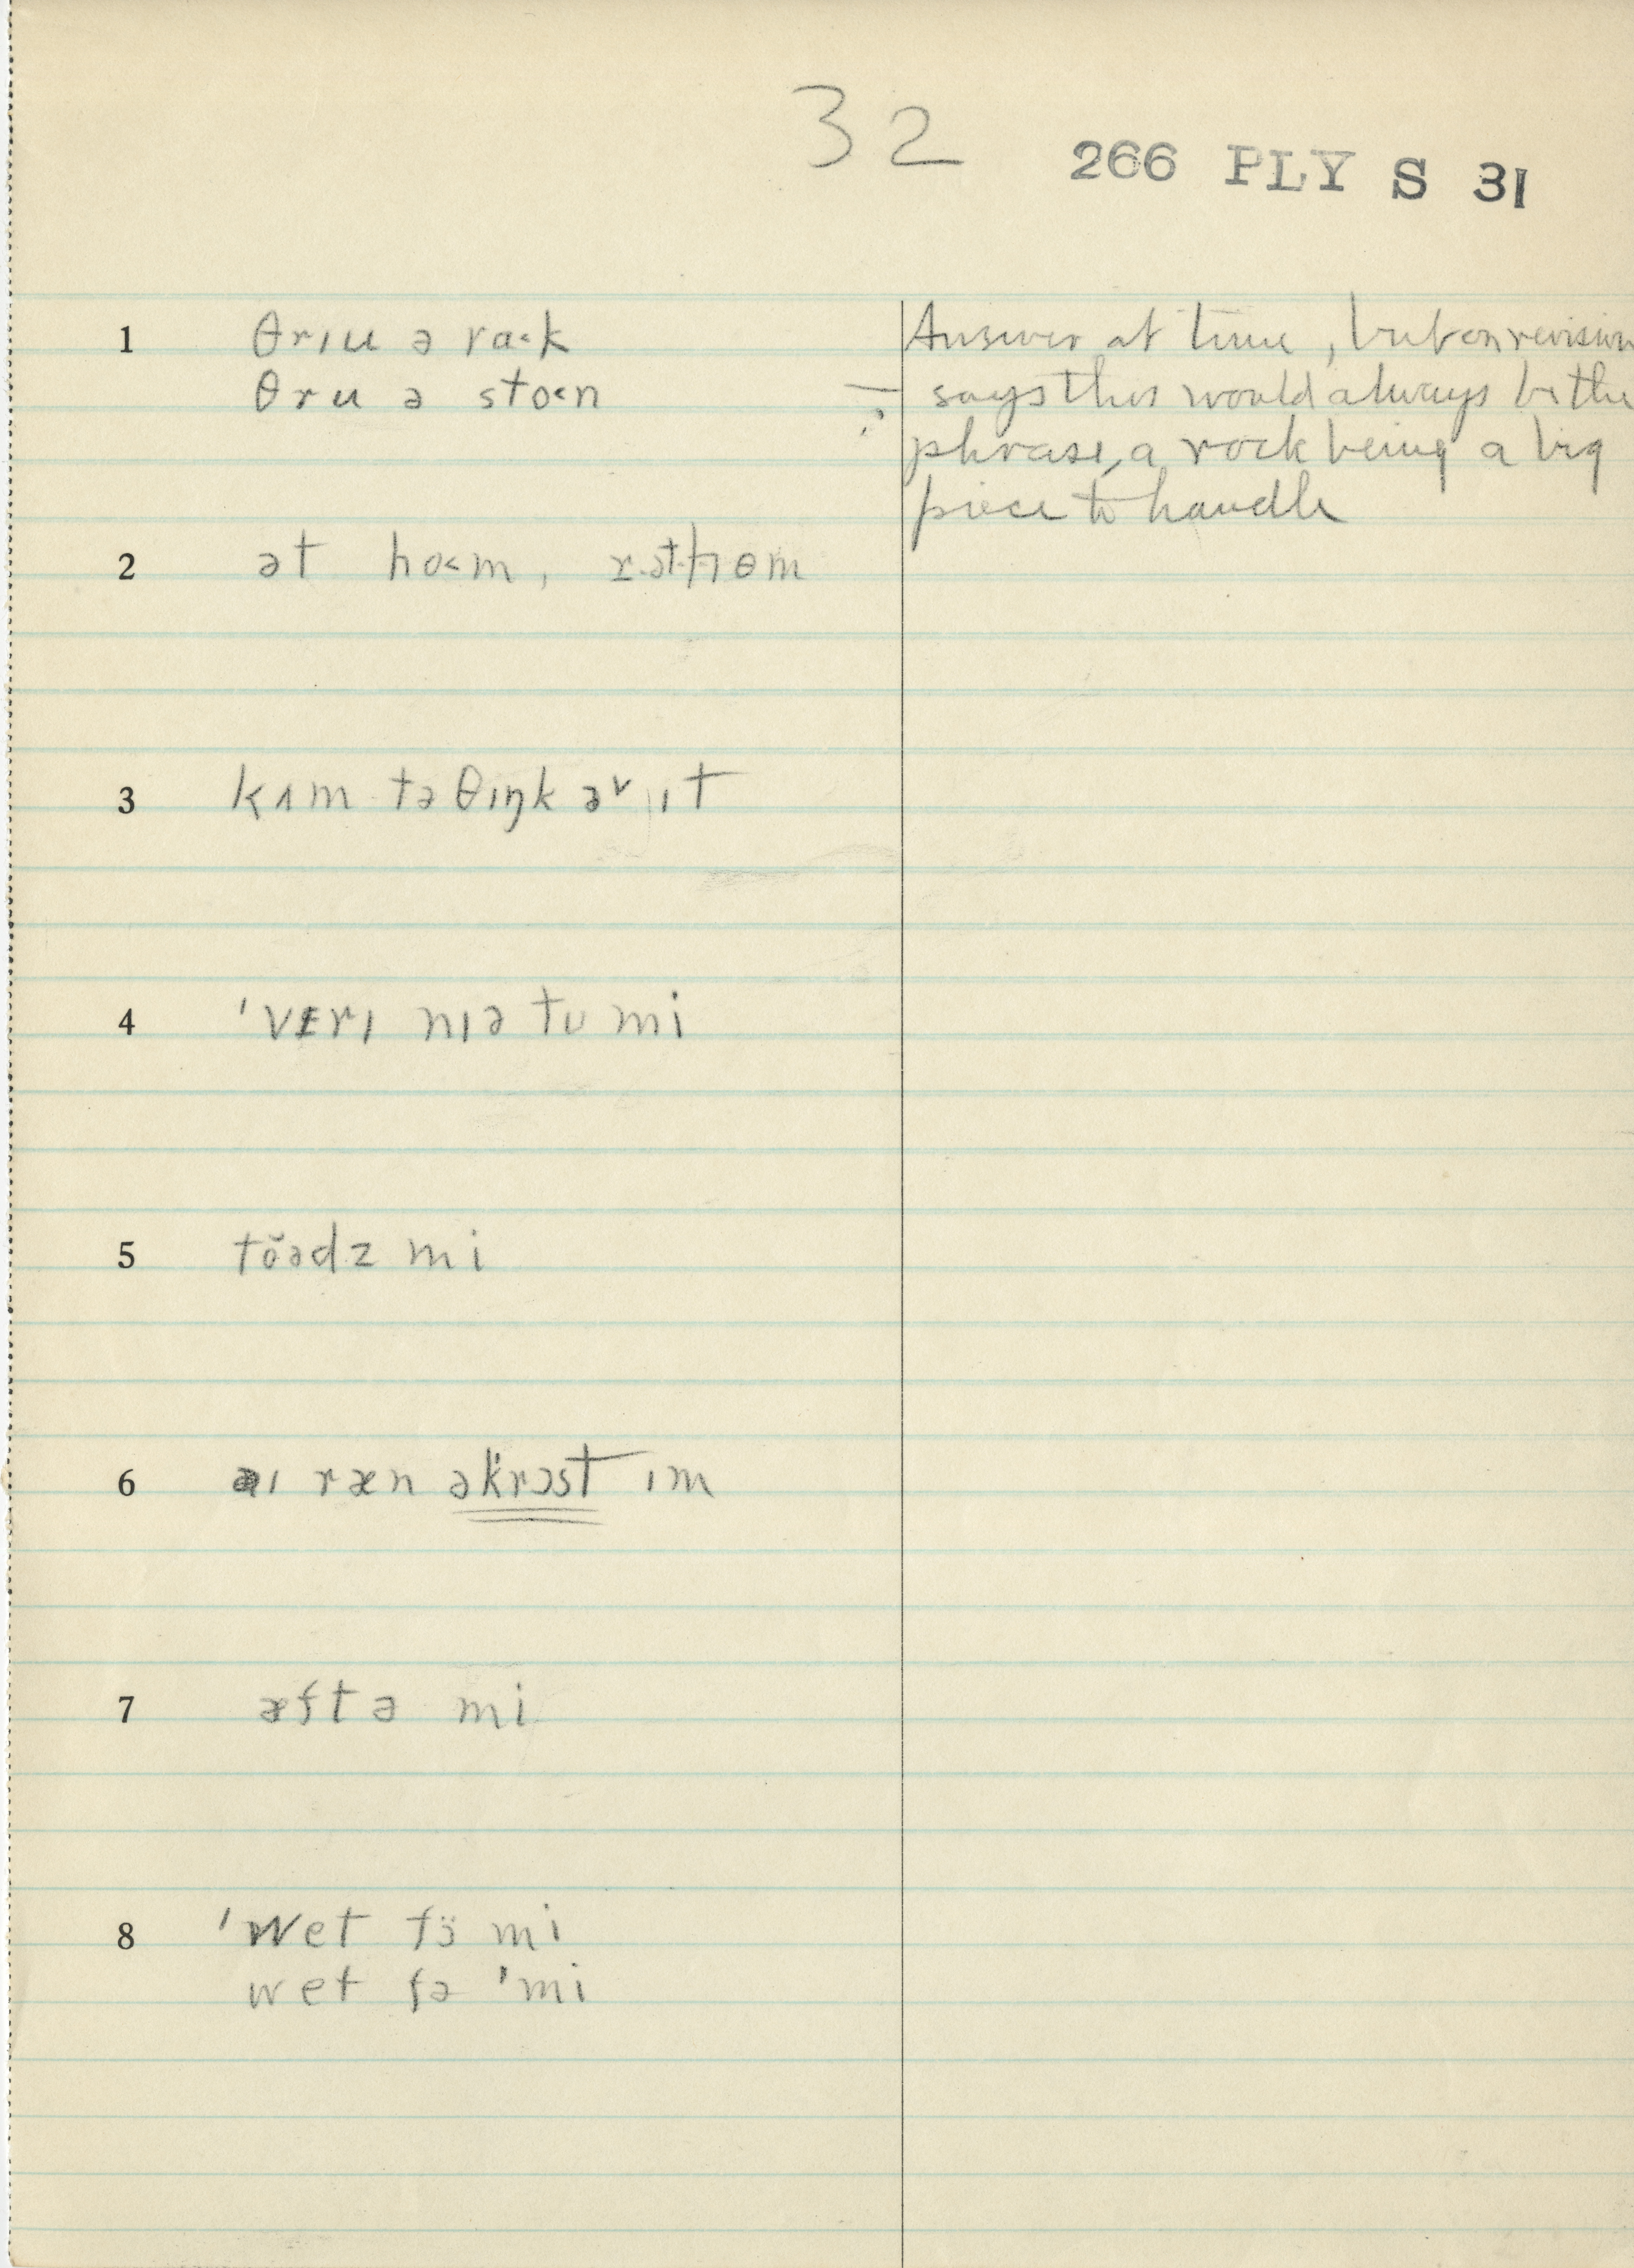 32
266 PLY S 31
1 θrɪu ə ra˂k
Answer at time, but on revision
θru ə sto˂n
÷ says this would always be the
phrase, a rock being a big
piece to handle
2 ət ho˂m, r.ət.hɵm
3 kʌm tə θɪŋk əv ɪt
4 ˈvɛrɪ nɪə tu mi
5 tŏədz mi
6 aɪ ræn əkrɔst ɪm
7 æftə mi
8 ˈwet fɔ̈ mi
wet fə ˈmi